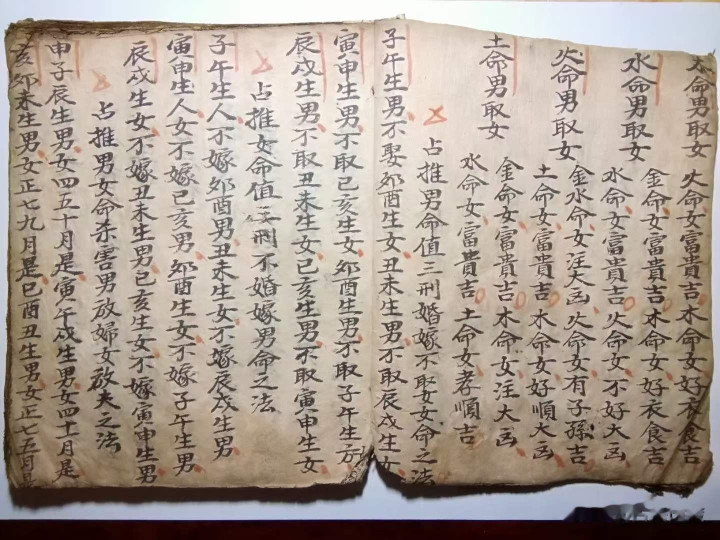 木命男取女 火命女富貴吉 木命女好衣食吉
金命女富貴吉 木命女好衣食吉
水命男取女 水命女富貴吉 火命女不好大凶
金水命女注大凶 火命女有子孫吉
火命男取女 土命女富貴吉 木命女好順大吉
金命女富貴吉 木命女注大凶
土命男取女 水命女富貴吉 土命女孝順吉
占推男命值三刑婚嫁不取女女命之法
子午生男不娶卯酉生女丑未生男不取辰戌生女
寅申生男不取巳亥生女卯酉生男不取子午生女
辰戌生男不取丑未生女巳亥生男不取寅申生女
占推女命值三刑不婚嫁男命之法
子午生人不嫁卯酉男丑未生女不嫁辰戌生男
寅申生人女不嫁巳亥男卯酉生女不嫁子午生男
辰戌生女不嫁丑未生男巳亥生女不嫁寅申生男
占推男女命杀害男放婦女放夫之法
申子辰生男女四五十月是寅午戌生男女四十月是
亥卯未生男女正七九月是巳酉丑生男女正七五月是